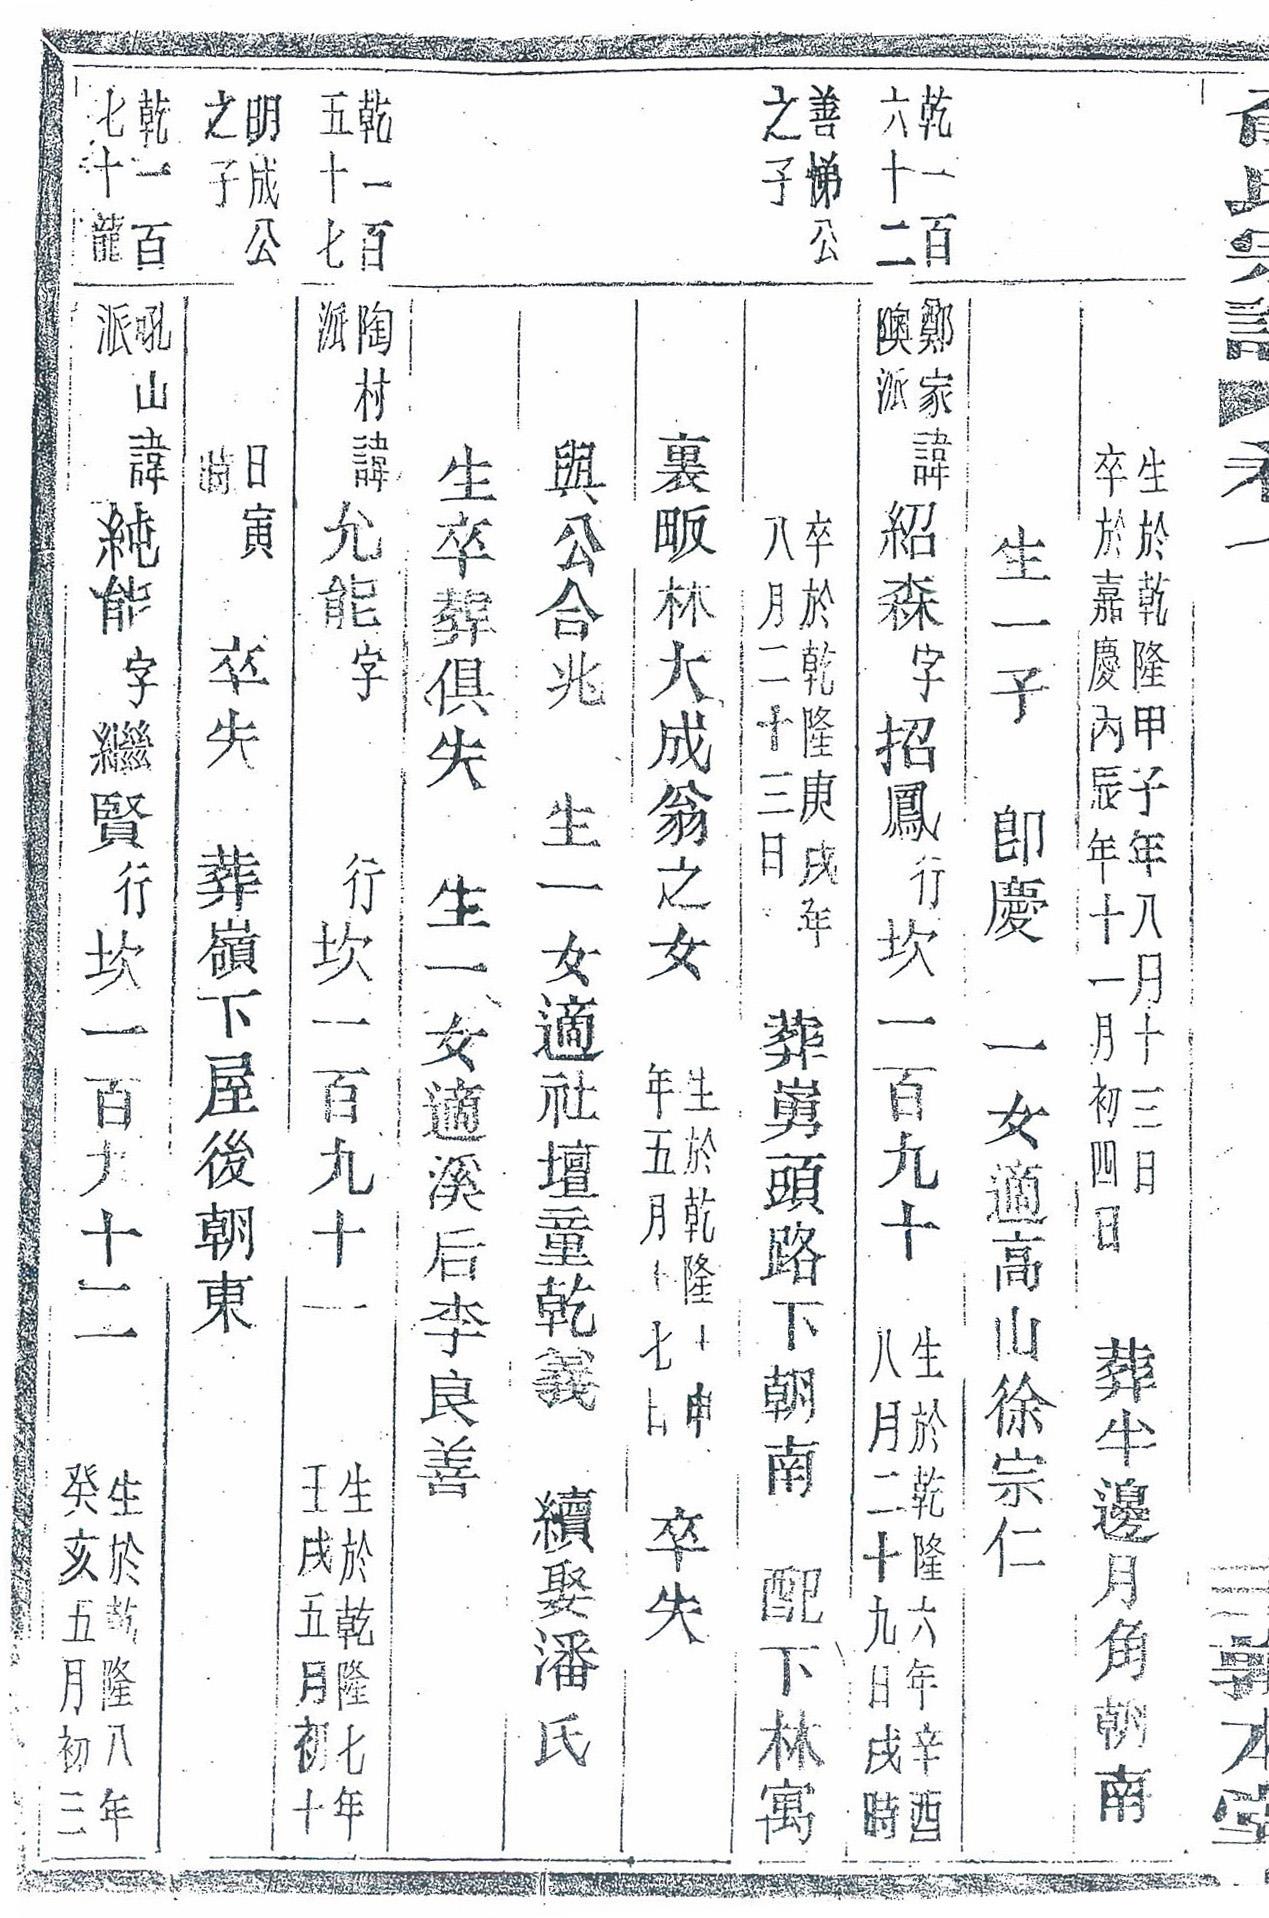 氏宗譜 卷一
敦本堂
生於乾隆甲子年八月十三日
卒於嘉慶丙辰年十一月初四日
葬半邊月角朝南
生一子 即慶 一女適高山徐宗仁
乾一百
六十二
鄭家
隩派
諱紹森字招鳳行坎一百九十
生於乾隆六年辛酉
八月二十九日戌時
善悌公
之子
卒於乾隆庚戌年
八月二十三日
葬嶺頭路下朝南 配下林寓
裏畈林大成翁之女
生於乾隆 申
年五月十七日
卒失
與公合兆 生一女適社壇童乾義 續娶潘氏
生卒葬俱失 生一女適溪后李良善
乾一百
五十七
陶村
派
諱允能字 行坎一百九十一
生於乾隆七年
壬戌五月初十
明成公
之子
日寅
時
卒失 葬嶺下屋後朝東
乾一百
七十龍
吼山
派
諱純能字繼賢行坎一百九十二
生於乾隆八年
癸亥五月初三